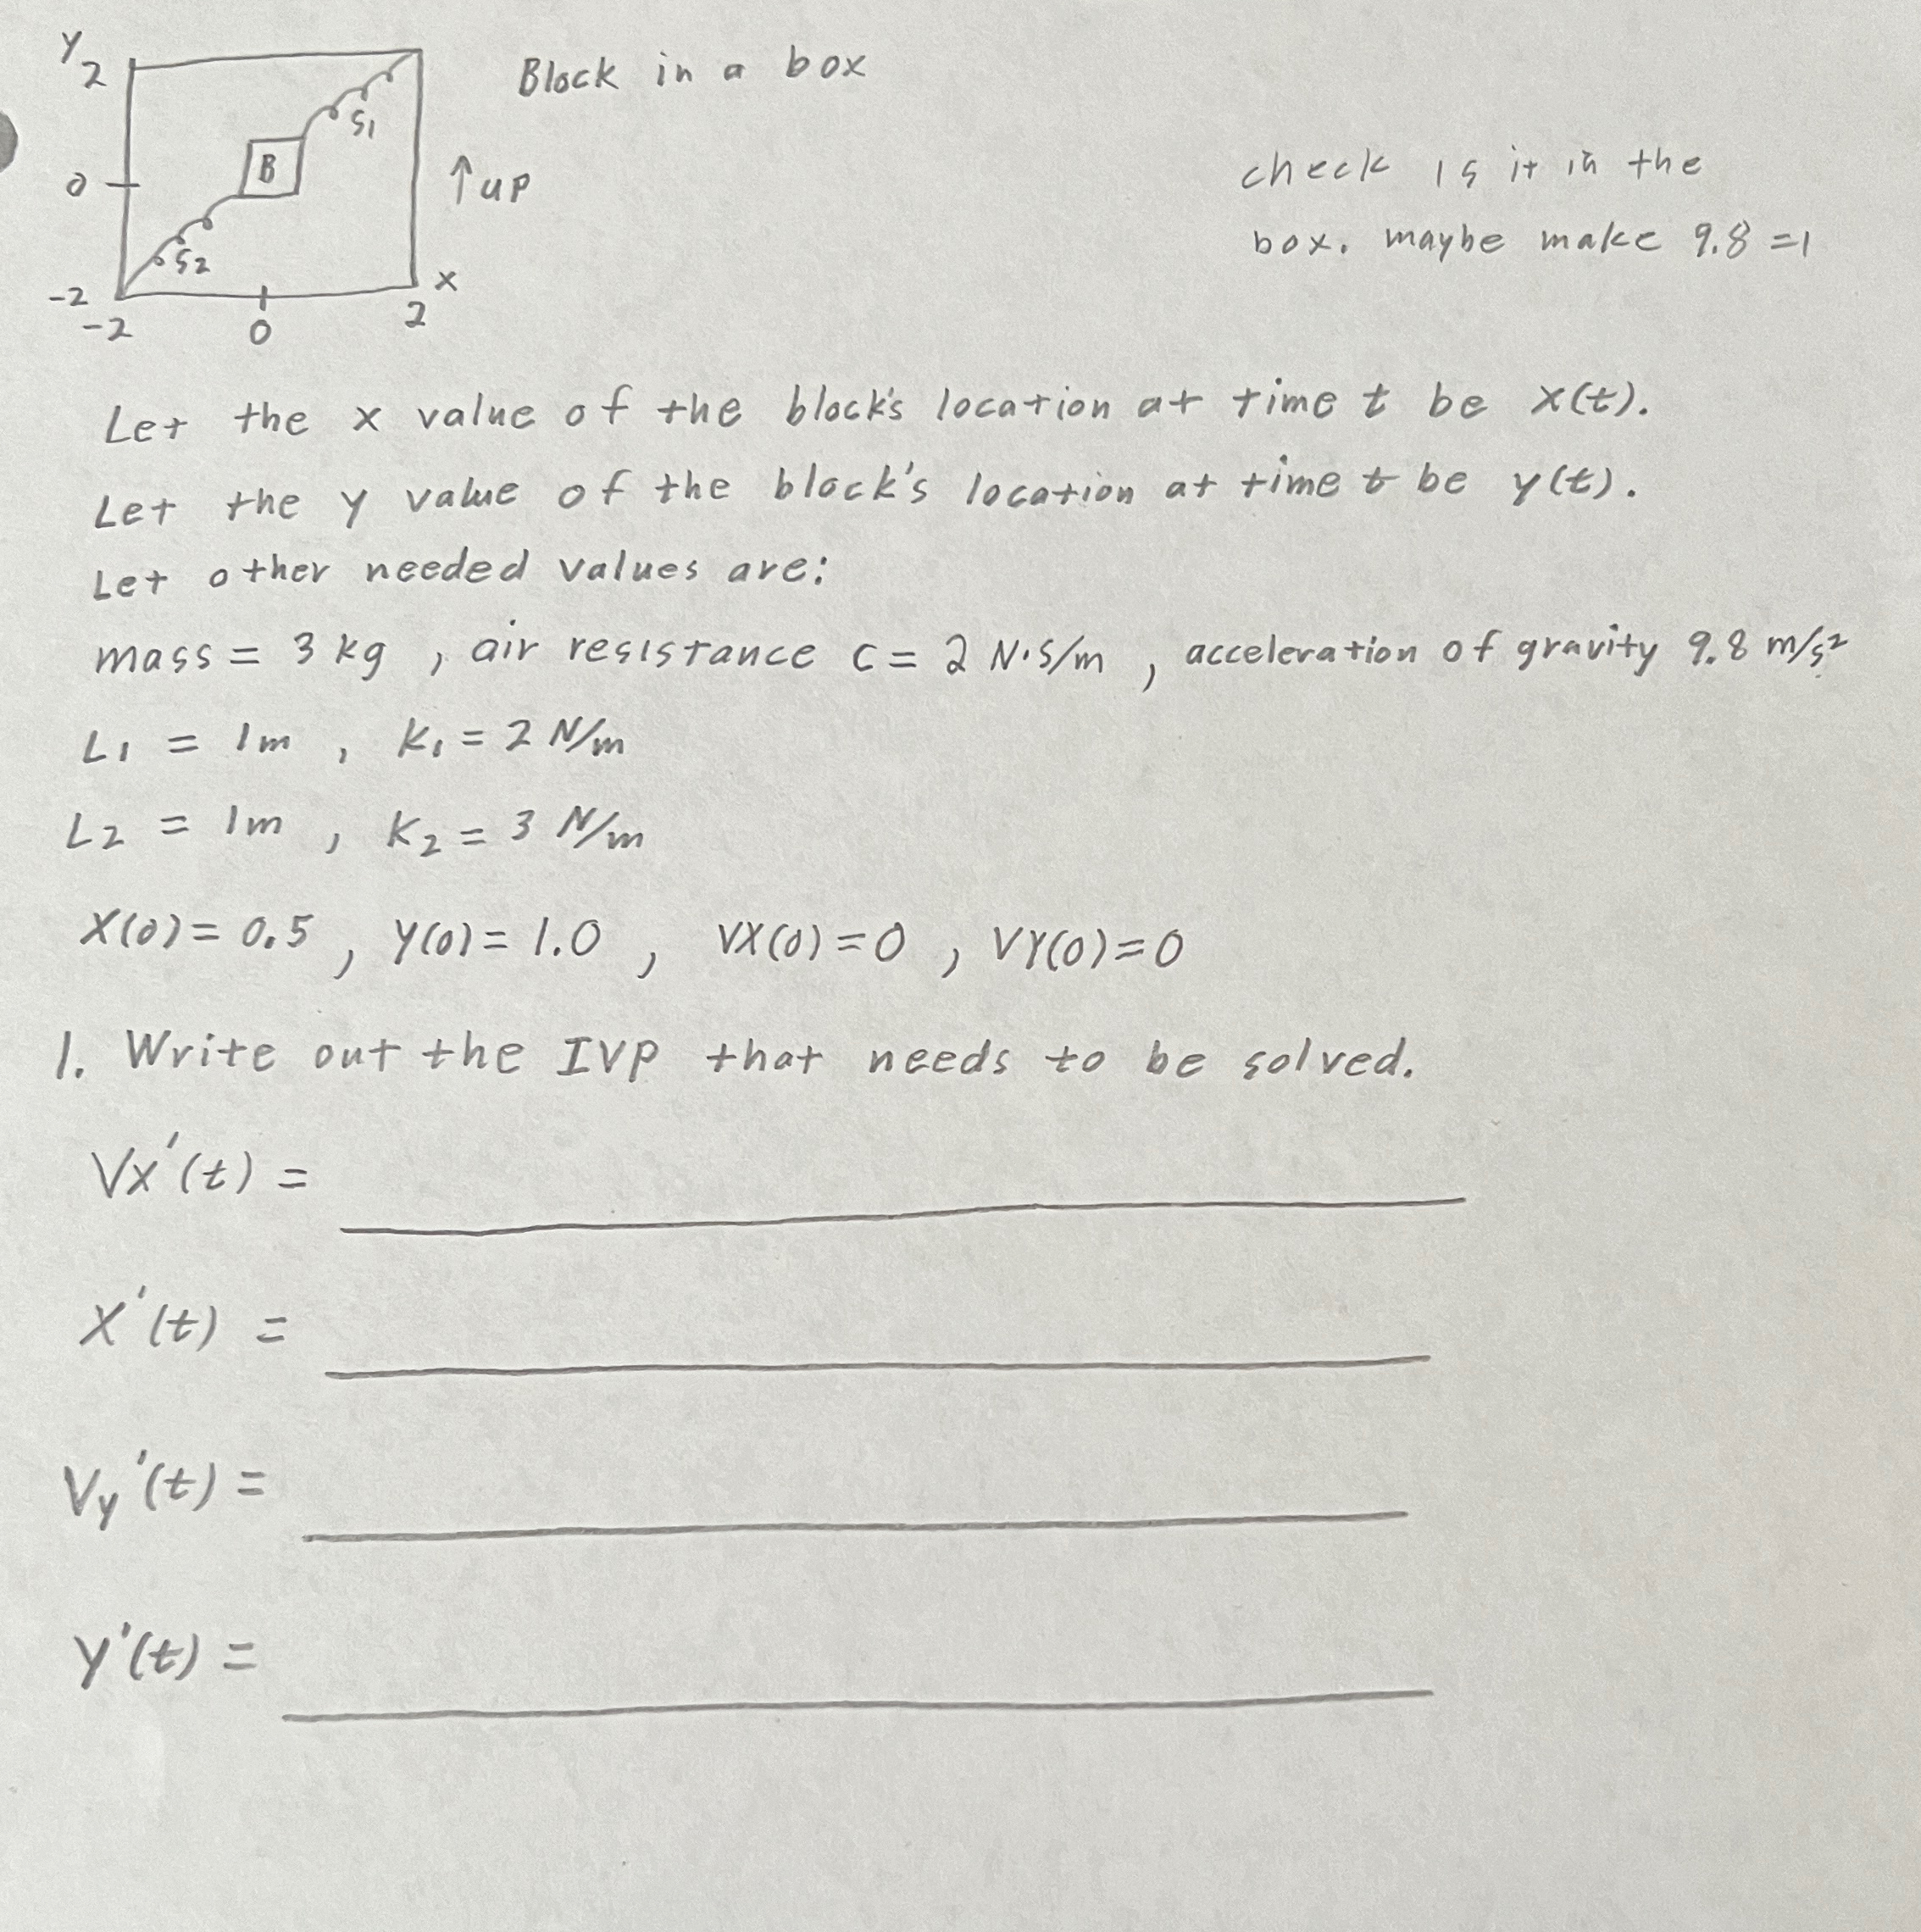 Y
2
Block in a box
S1
B
0
↑ up
check is it in the
box. maybe make 9.8 = 1
S2
-2
x
-2
0
2
Let the x value of the block's location at time t be x(t).
Let the y value of the block's location at time t be y(t).
Let other needed values are:
mass = 3 kg , air resistance c = 2 N·S/m , acceleration of gravity 9.8 m/s²
L1 = 1m , K1 = 2 N/m
L2 = 1m , K2 = 3 N/m
X(0) = 0.5 , Y(0) = 1.0 , VX(0) = 0 , VY(0) = 0
1. Write out the IVP that needs to be solved.
Vx'(t) =
X'(t) =
Vy'(t) =
Y'(t) =